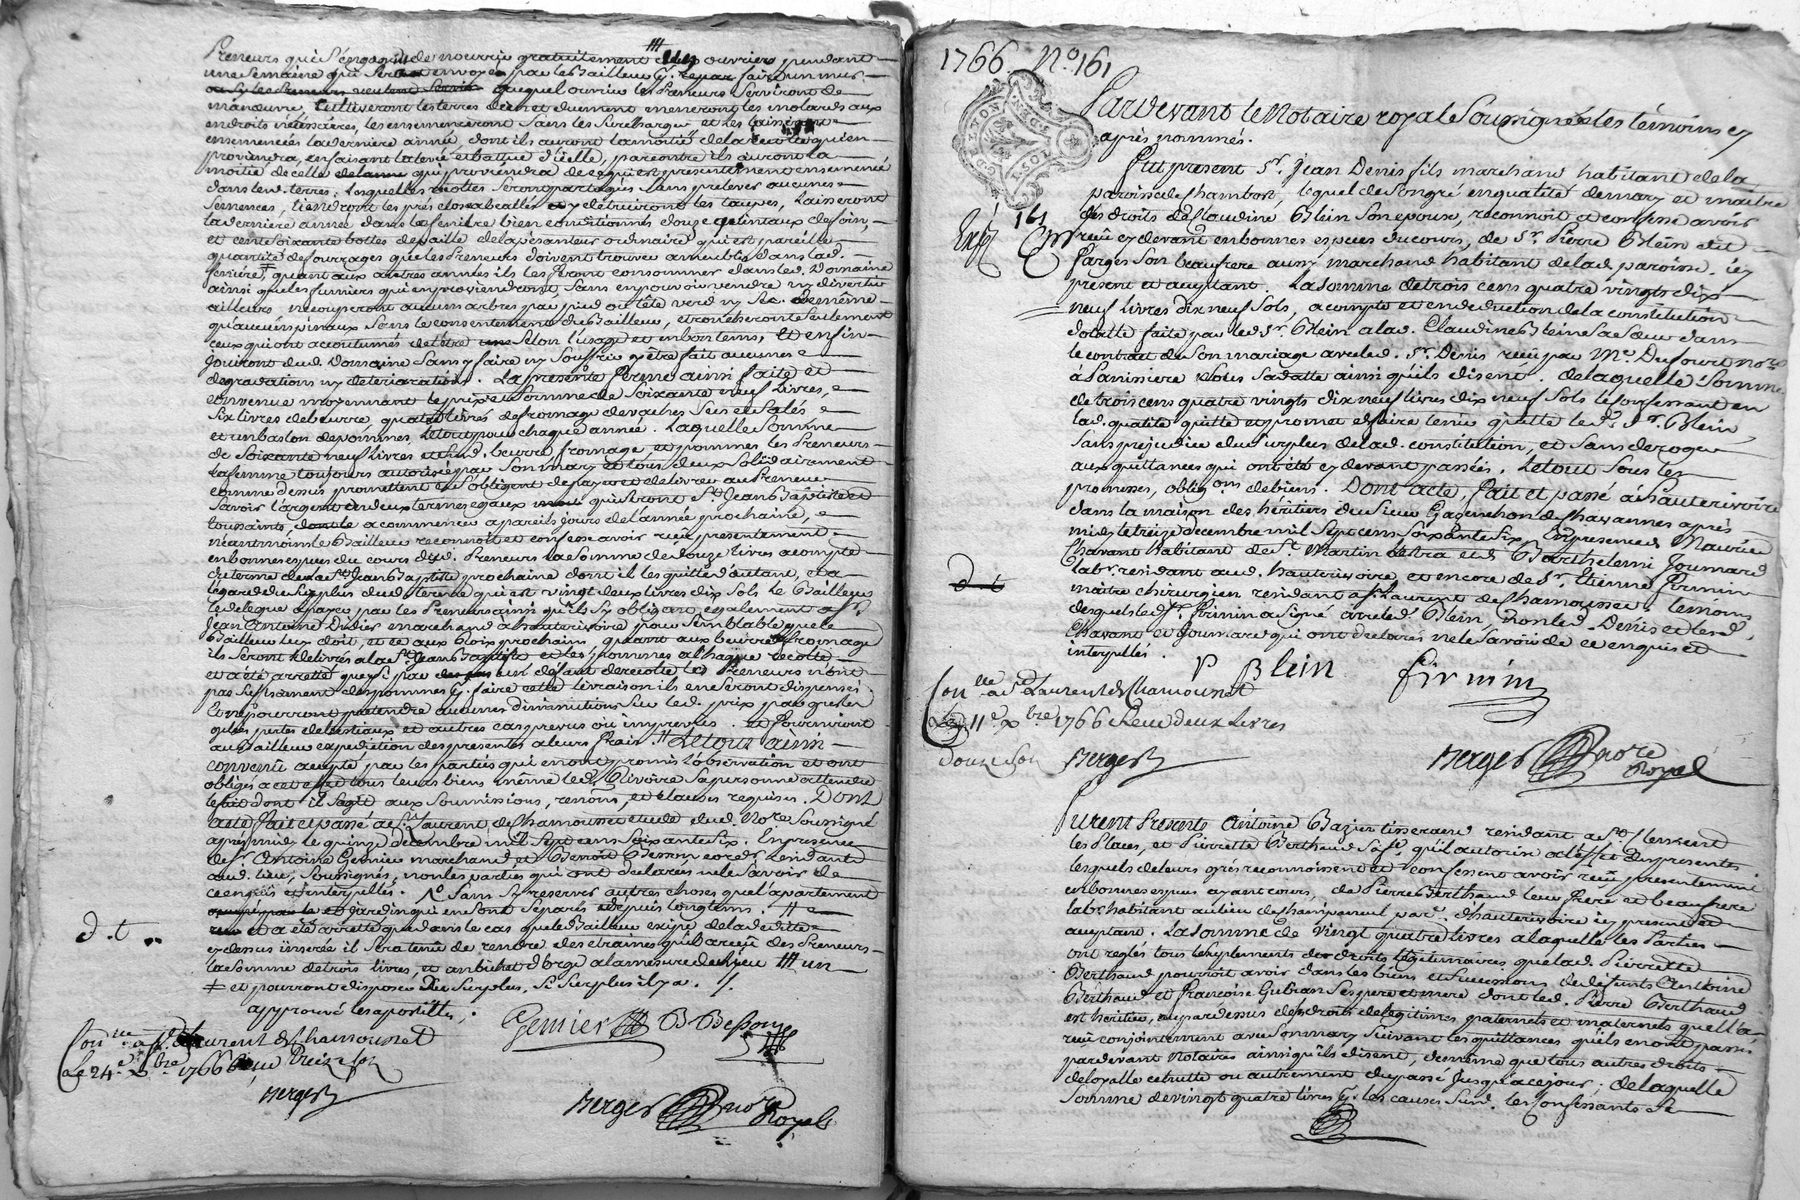 Preneurs qui s'engagent de nourrir gratuitement ouvriers pendant
une semaine qui sera envoyés par le Bailleur pr. faire un mur
auquel ouvrier les Preneurs serviront de
manœuvre, cultiveront les terres bien et duement meneront les molards aux
endroits nécessaires, les ensemenceront sans les surcharger et les laisseront
ensemencées la derniere année, dont ils auront la moitié de la recolte qui en
proviendra, en faisant la levée et battue d'icelle, par contre ils auront la
moitié de celle qui proviendra de ce qui est presentement ensemencé
dans les d. terres; lesquelles recoltes seront partagées sans prelever aucunes
semences, tiendront les prés clos abeallés et y détruiront les taupes, Laisseront
la derniere année dans la feniere bien conditionnés douze quintaux de foin,
et cent soixante bottes de paille de la pésanteur ordinaire qui est pareille
quantité de fourrages que les Preneurs doivent trouver ameublés dans lad.
feniere, quant aux autres années ils les feront consommer dans led. Domaine
ainsi que les fumiers qui en proviendront sans en pouvoir vendre ny divertir
ailleurs, ne couperont aucuns arbres par pied ou tête verd ny sec de même
qu'aucuns pinaux sans le consentement du Bailleur, et n'ébrancheront seulement
ceux qui ont accoutumés de l'être selon l'usage et en bon tems, Et enfin
jouiront dud. Domaine sans y faire ny souffrir y être fait aucunes
degradations ny deteriorations. La presente ferme ainsi faite et
convenue moyennant le prix et somme de soixante neuf Livres,
six livres de beurre, quatre livres de fromage de vaches sec et salés
et un baslon de pommes, Le tout pour chaque année. Laquelle somme
de soixante neuf livres et lesd. beurre, fromage et pommes les Preneurs
la femme toujours autorisée par son mary et tous deux solidairement
comme dessus promettent et s'obligent de payer et delivrer au Preneur
savoir l'argent en deux termes egaux qui seront St. Jean Baptiste et
toussaints, a commencer a pareils jours de l'année prochaine,
néantmoins le Bailleur reconnoit et confesse avoir reçu presentement
en bonnes especes du cours desd. Preneurs la somme de douze livres a compte
du terme de la St. Jean Baptiste prochaine dont il les quitte d'autant, et a
l'égard du surplus dud. terme qui est vingt deux livres dix sols Le Bailleur
le delegue a payer par les Preneurs ainsi qu'ils s'y obligent egalement a Sr.
Jean Antoine Didier marchand a hauterivoire pour semblable que le
Bailleur lui doit, et ce aux Rois prochains, quant aux beurre et fromage
ils seront delivrés a la St. Jean Baptiste et les pommes a chaque recolte
et a été arretté que si par un défaut de recolte les Preneurs n'ont
pas suffisament des pommes pr. faire cette livraison ils en seront dispensés.
Et ne pourront pretendre aucunes diminutions sur led. prix pour quelles
quelques pertes de bestiaux et autres cas prevus ou imprevus. et fourniront
au Bailleur expedition des presentes a leurs frais. Le tout ainsi
convenu accepté par les parties qui en ont promis l'observation et ont
obligés a cet effet tous leurs biens même led. Rivoire sa personne attendu
le fait dont il s'agit aux soumissions, renons, et clauses requises. Dont
acte fait et passé a St. Laurent de Chamousset etude dud. Nore. soussigné
après midy le quinze decembre mil sept cens soixante six. En presence
de Sr. Antoine Gemier marchand et Benoit Besson cord. residants
aud. lieu, soussignés, non les parties qui ont declarés ne le savoir de
ce enquis et interpellés. sans y reserver autres choses que l'apartement
et jardin qui en sont separés depuis longtems.
et a été arretté que dans le cas que le Bailleur exige de la ditte
cy dessus inserée il sera tenu de rendre les etraines qu'il a reçu des Preneurs
la somme de trois livres, et un bichet d'orge a la mesure de ce lieu un
et pourront disposer du surplus, si surplus il y a.
approuvé les apostilles.
Gemier B Besson
d. t.
Con lle a St Laurent de Chamousset
Le 24e xbre 1766 Reçu Treize sols
Berger
Berger nore Royal
1766. No. 161
Pardevant le Notaire royal Soussigné et les témoins cy
après nommés.
Fut present Sr. Jean Denis fils marchand habitant de la
paroisse de Chambost, lequel de son gré en qualité de mary et maitre
des droits de Claudine Blein son epouse, reconnoit et confesse avoir
161
Exp
reçu cy devant en bonnes especes du cours, de Sr. Pierre Blein dit
Farges son beaufrere aussy marchand habitant de lad. paroisse icy
present et acceptant. La somme de trois cens quatre vingts dix
neuf livres dix neuf sols, a compte et en deduction de la constitution
dotalle faite par led. Sr. Blein a lad. Claudine Blein sa sœur dans
le contrat de son mariage avec led. Sr. Denis reçu par Me. Dufourt nore.
à Panissiere sous sa datte ainsi qu'ils disent. de laquelle somme
de trois cens quatre vingts dix neuf livres dix neuf sols le confessant en
lad. qualité quitte et promet en faire tenir quitte led. Sr. Blein,
sans préjudice du surplus de lad. constitution, et sans deroger
aux quittances qui ont été cy devant passées. Le tout sous les
promesses, obligons. de biens. Dont acte, fait et passé à hauterivoire
dans la maison des héritiers du sieur Gagnichon de Chavannes après
midy le treize decembre mil sept cens soixante six. En presence de Maurice
Chavant habitant de St. Martin Lestra et de Barthelemi Joumard
labr. residant aud. hauterivoire, et encore de Sr. Etienne Firmin
maitre chirurgien residant a St. Laurent de Chamousset, temoins
desquels led. Sr. Firmin a signé avec led. Blein, non led. Denis et lesd.
Chavant et Joumard qui ont declarés ne le savoir de ce enquis et
interpellés.
d t
P Blein firmin
Con lle a St Laurent de Chamousset
Le 11e xbre 1766 Reçu deux Livres
Douze sols Berger
Berger nore Royal
Furent Presents Antoine Bazier tisserand residant a St. Clement
les Places, et Pierrette Berthaud sa fe. qu'il autorise a l'effet des presentes
lesquels de leurs grés reconnoissent et confessent avoir reçu presentement
en bonnes especes ayant cours, de Pierre Berthaud leur frere et beaufrere
labr. habitant au lieu de Champeneul parr. d'hauterivoire icy present et
acceptant. La somme de vingt quatre livres a laquelle les Parties
ont reglés tous les suplements des droits légitimaires que lad. Pierrette
Berthaud pourroit avoir dans les biens et successions de défunts Antoine
Berthaud et Françoise Gubian ses pere et mere dont led. Pierre Berthaud
est héritier, au par dessus desd. droits de légitimes paternels et maternels qu'elle a
reçu conjointement avec son mary suivant les quittances qu'ils en ont passé
pardevant Notaires ainsi qu'ils disent, de même que tous autres droits
de loyalle et autrement du passé jusqu'a ce jour; de laquelle
somme de vingt quatre livres pr. les causes susd. les Confessants se